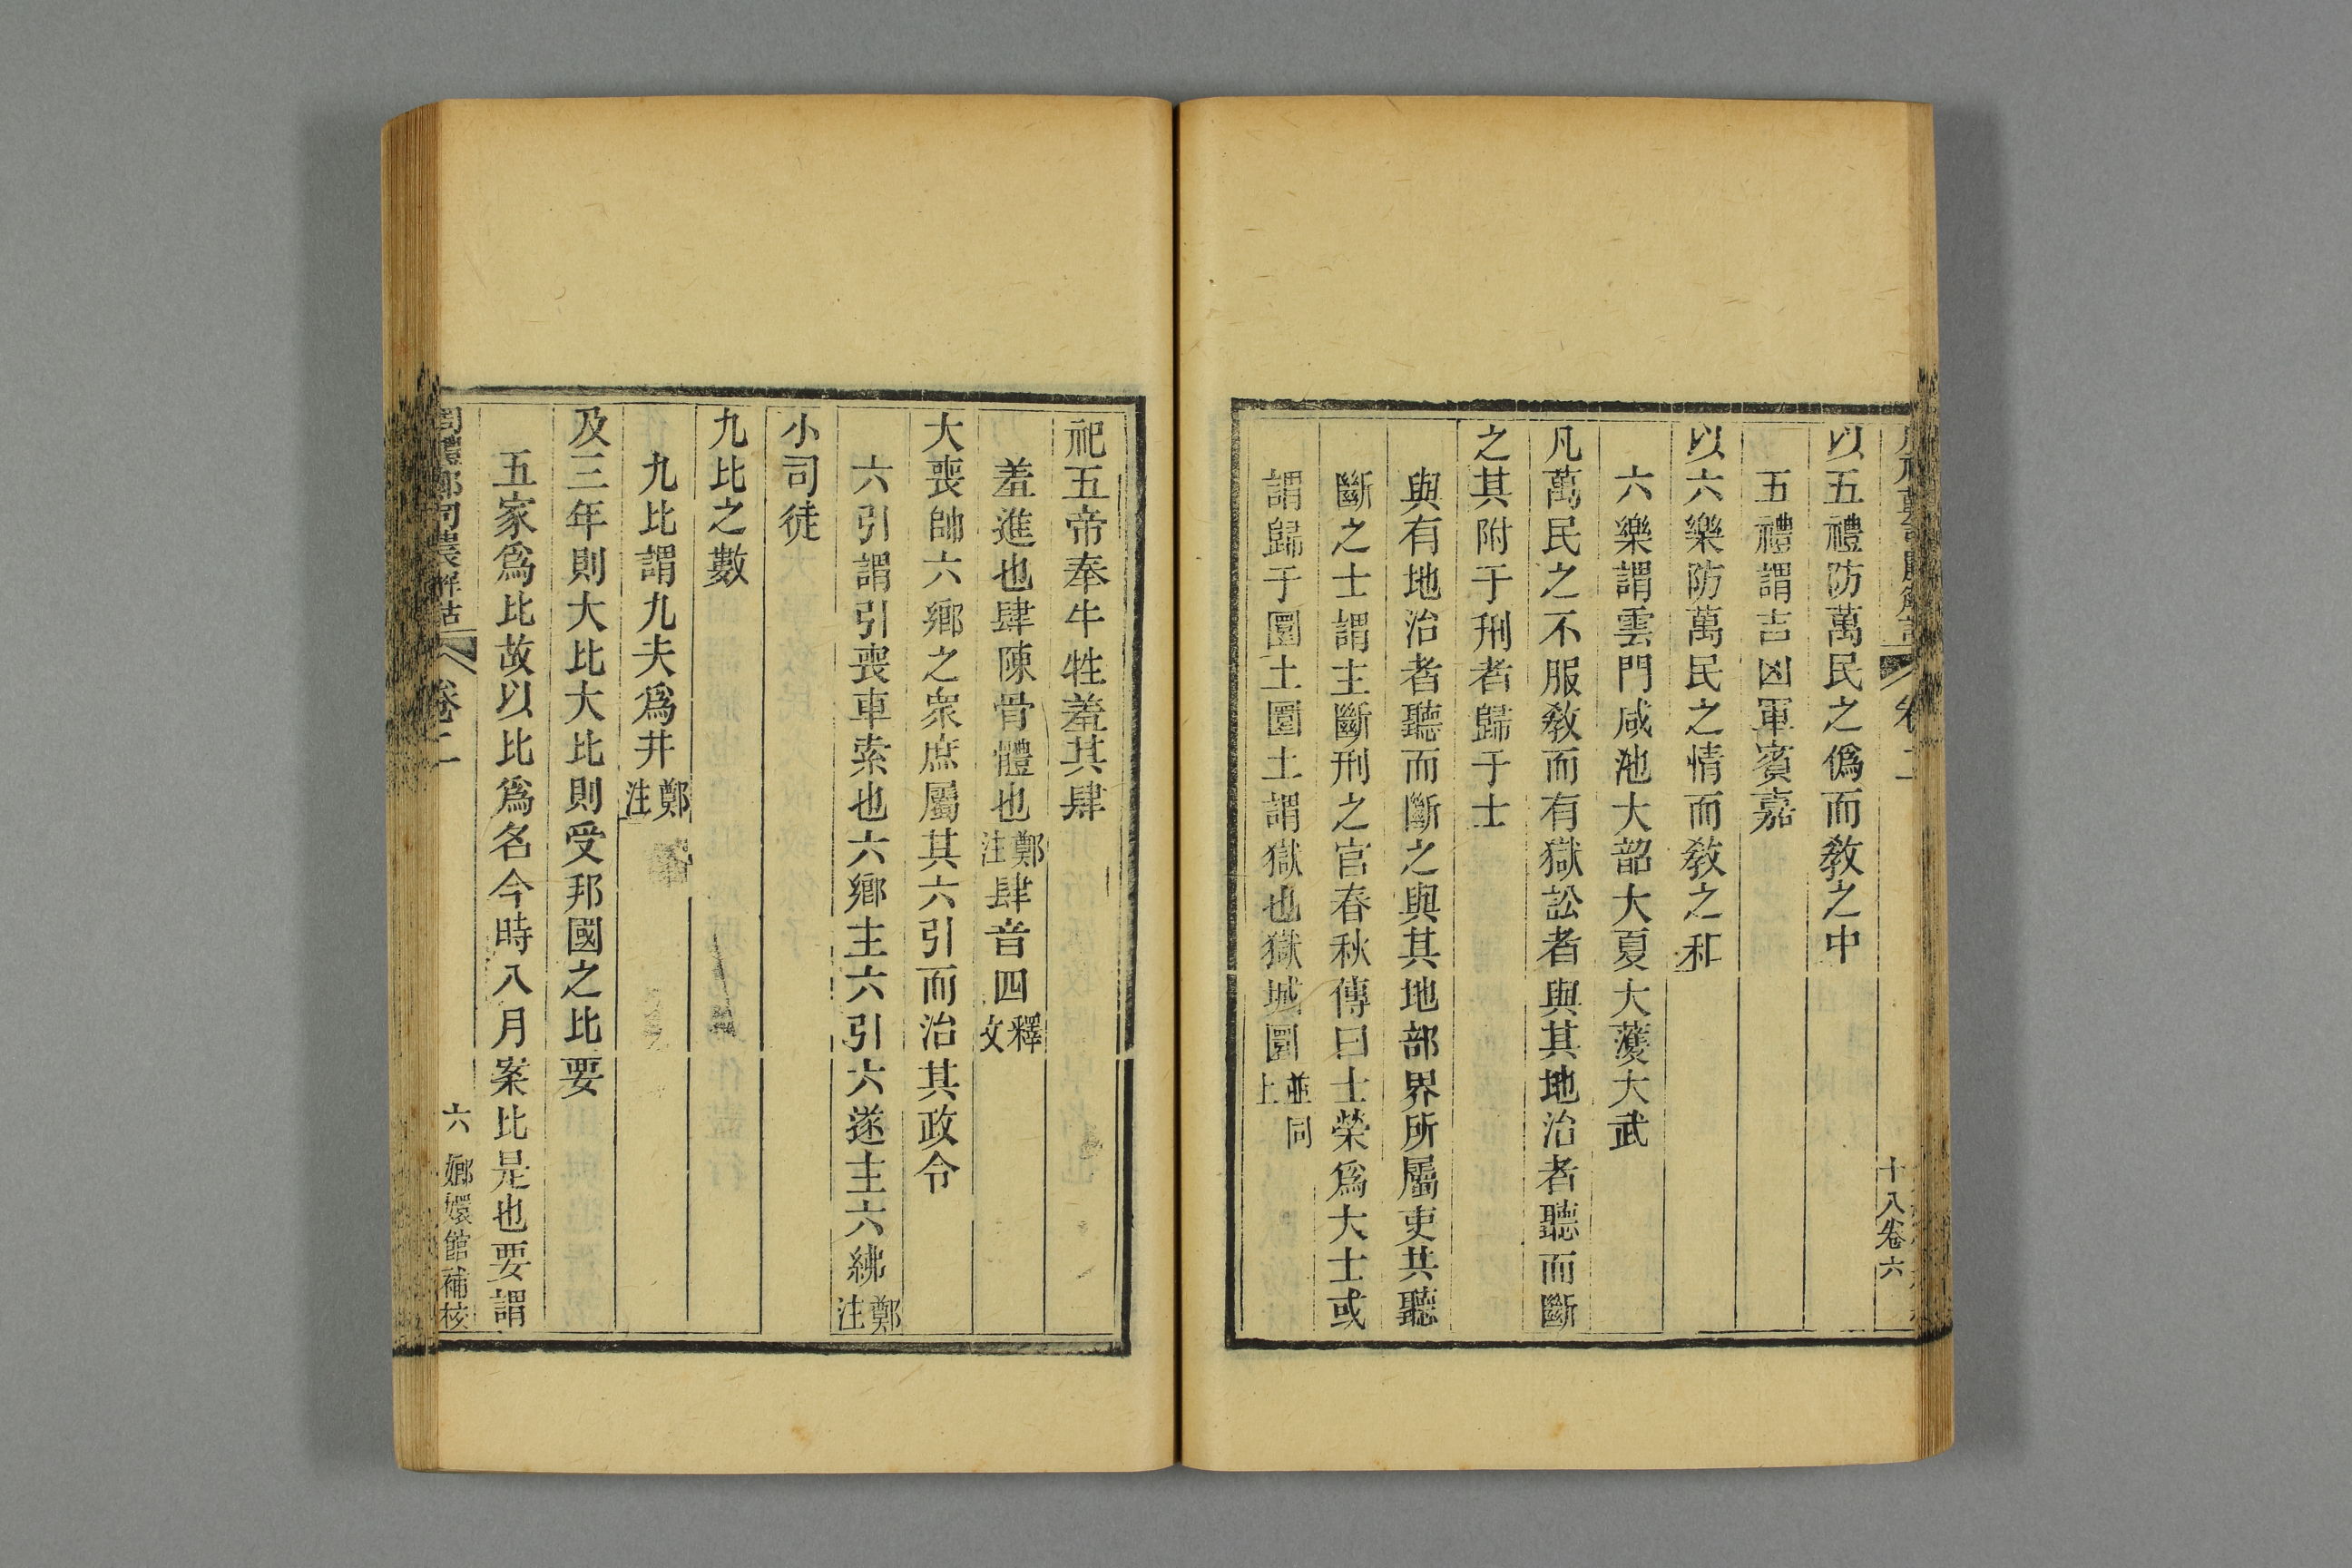 以五禮防萬民之僞而教之中
五禮謂吉凶軍賓嘉
以六樂防萬民之情而教之和
六樂謂雲門咸池大韶大夏大濩大武
凡萬民之不服教而有獄訟者與其地治者聽而斷
之其附于刑者歸于士
與有地治者聽而斷之與其地部界所屬吏共聽
斷之士謂主斷刑之官春秋傳曰士榮爲大士或
謂歸于圜土圜土謂獄也獄城圜並同上
十八卷六
祀五帝奉牛牲羞其肆
羞進也肆陳骨體也鄭注肆音四釋文
大喪帥六鄉之衆庶屬其六引而治其政令
六引謂引喪車索也六鄉主六引六遂主六紼鄭注
小司徒
九比之數
九比謂九夫爲井鄭注
及三年則大比大比則受邦國之比要
五家爲比故以比爲名今時八月案比是也要謂
周禮鄭司農解詁 卷二 六 嫏嬛館補校